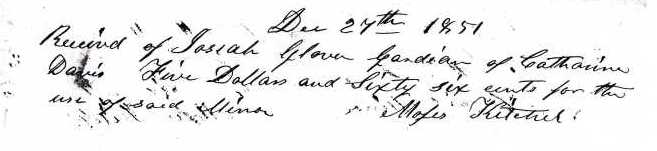 Dec 27th 1851
Received of Josiah Glover Gardian of Catharine
Davis Five Dollars and Sixty six cents for the
use of said Minor Moses Kitchel